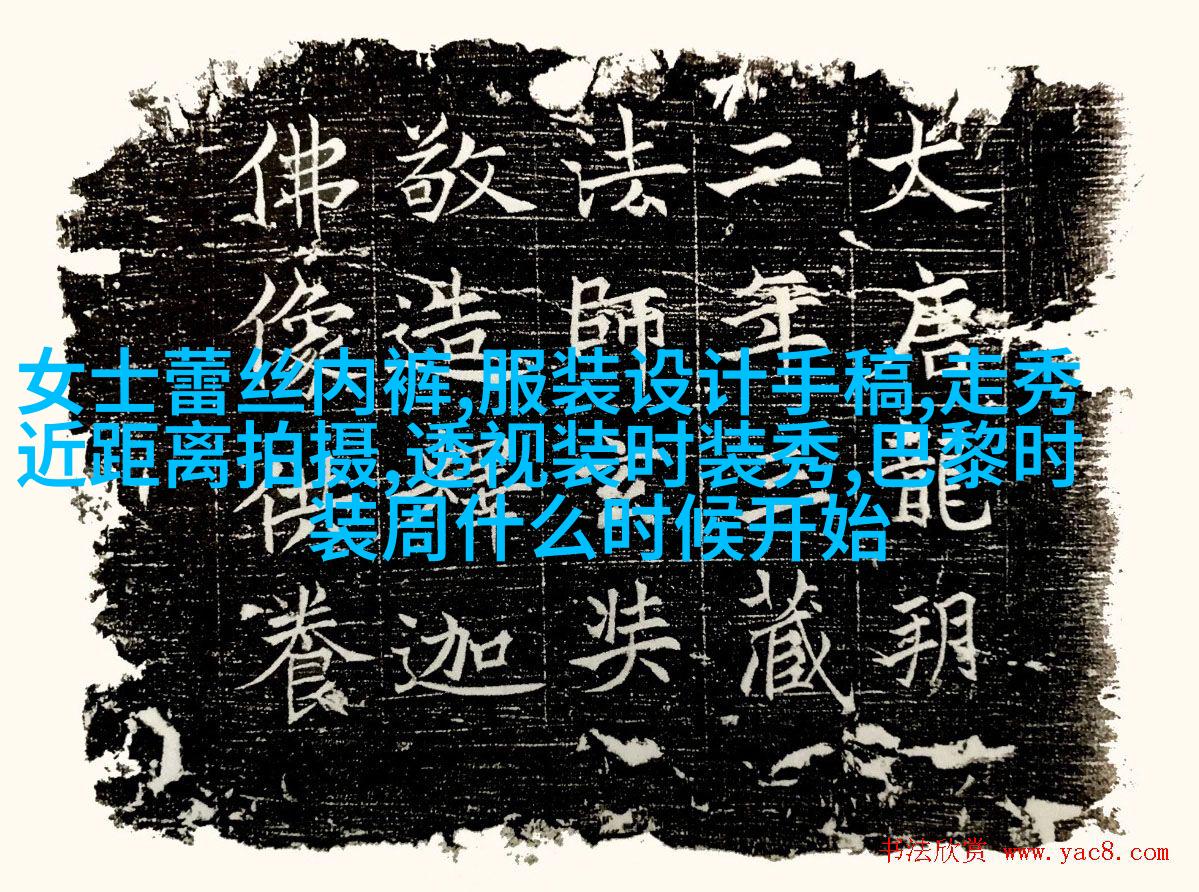 大唐龍朔
二年三藏
法師玄奘
敬造釋迦
佛像供養
女士蕾丝内裤,服装设计手稿,走秀
近距离拍摄,透视装时装秀,巴黎时
装周什么时候开始
书法欣赏 www.yac8.com